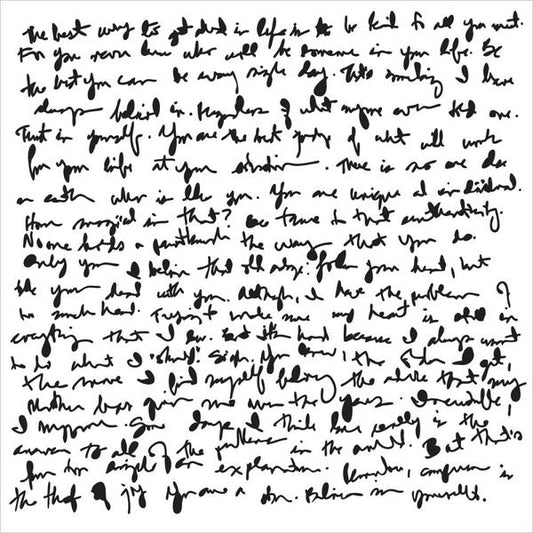 The best way to get ahead in life is to be kind to all you meet.
For you never know who will be someone in your life. Be
the best you can be every single day. That's something I have
always believed in. Regardless of what anyone ever told me.
Trust in yourself. You are the best judge of what will work
for your life at your . There is no one else
on earth who is like you. You are unique and individual.
How magical is that? Be true to that authenticity.
No one holds a the way that you do.
Only you I believe that old adage: follow your heart, but
take your head with you. Although, I have the problem of
too much head. Trying to make sure my heart is also in
everything that I do. But it's hard because I always want
to do what I "should." Sigh. You know, the I get,
the more I find myself the advice that my
Mother has given me over the years. Incredible,
I suppose. Some days, I think love really is the
answer to all of the problems in the world. But that's
far too simple an explanation. Remember, comparison is
the thief of joy. You are a star. Believe in yourself.